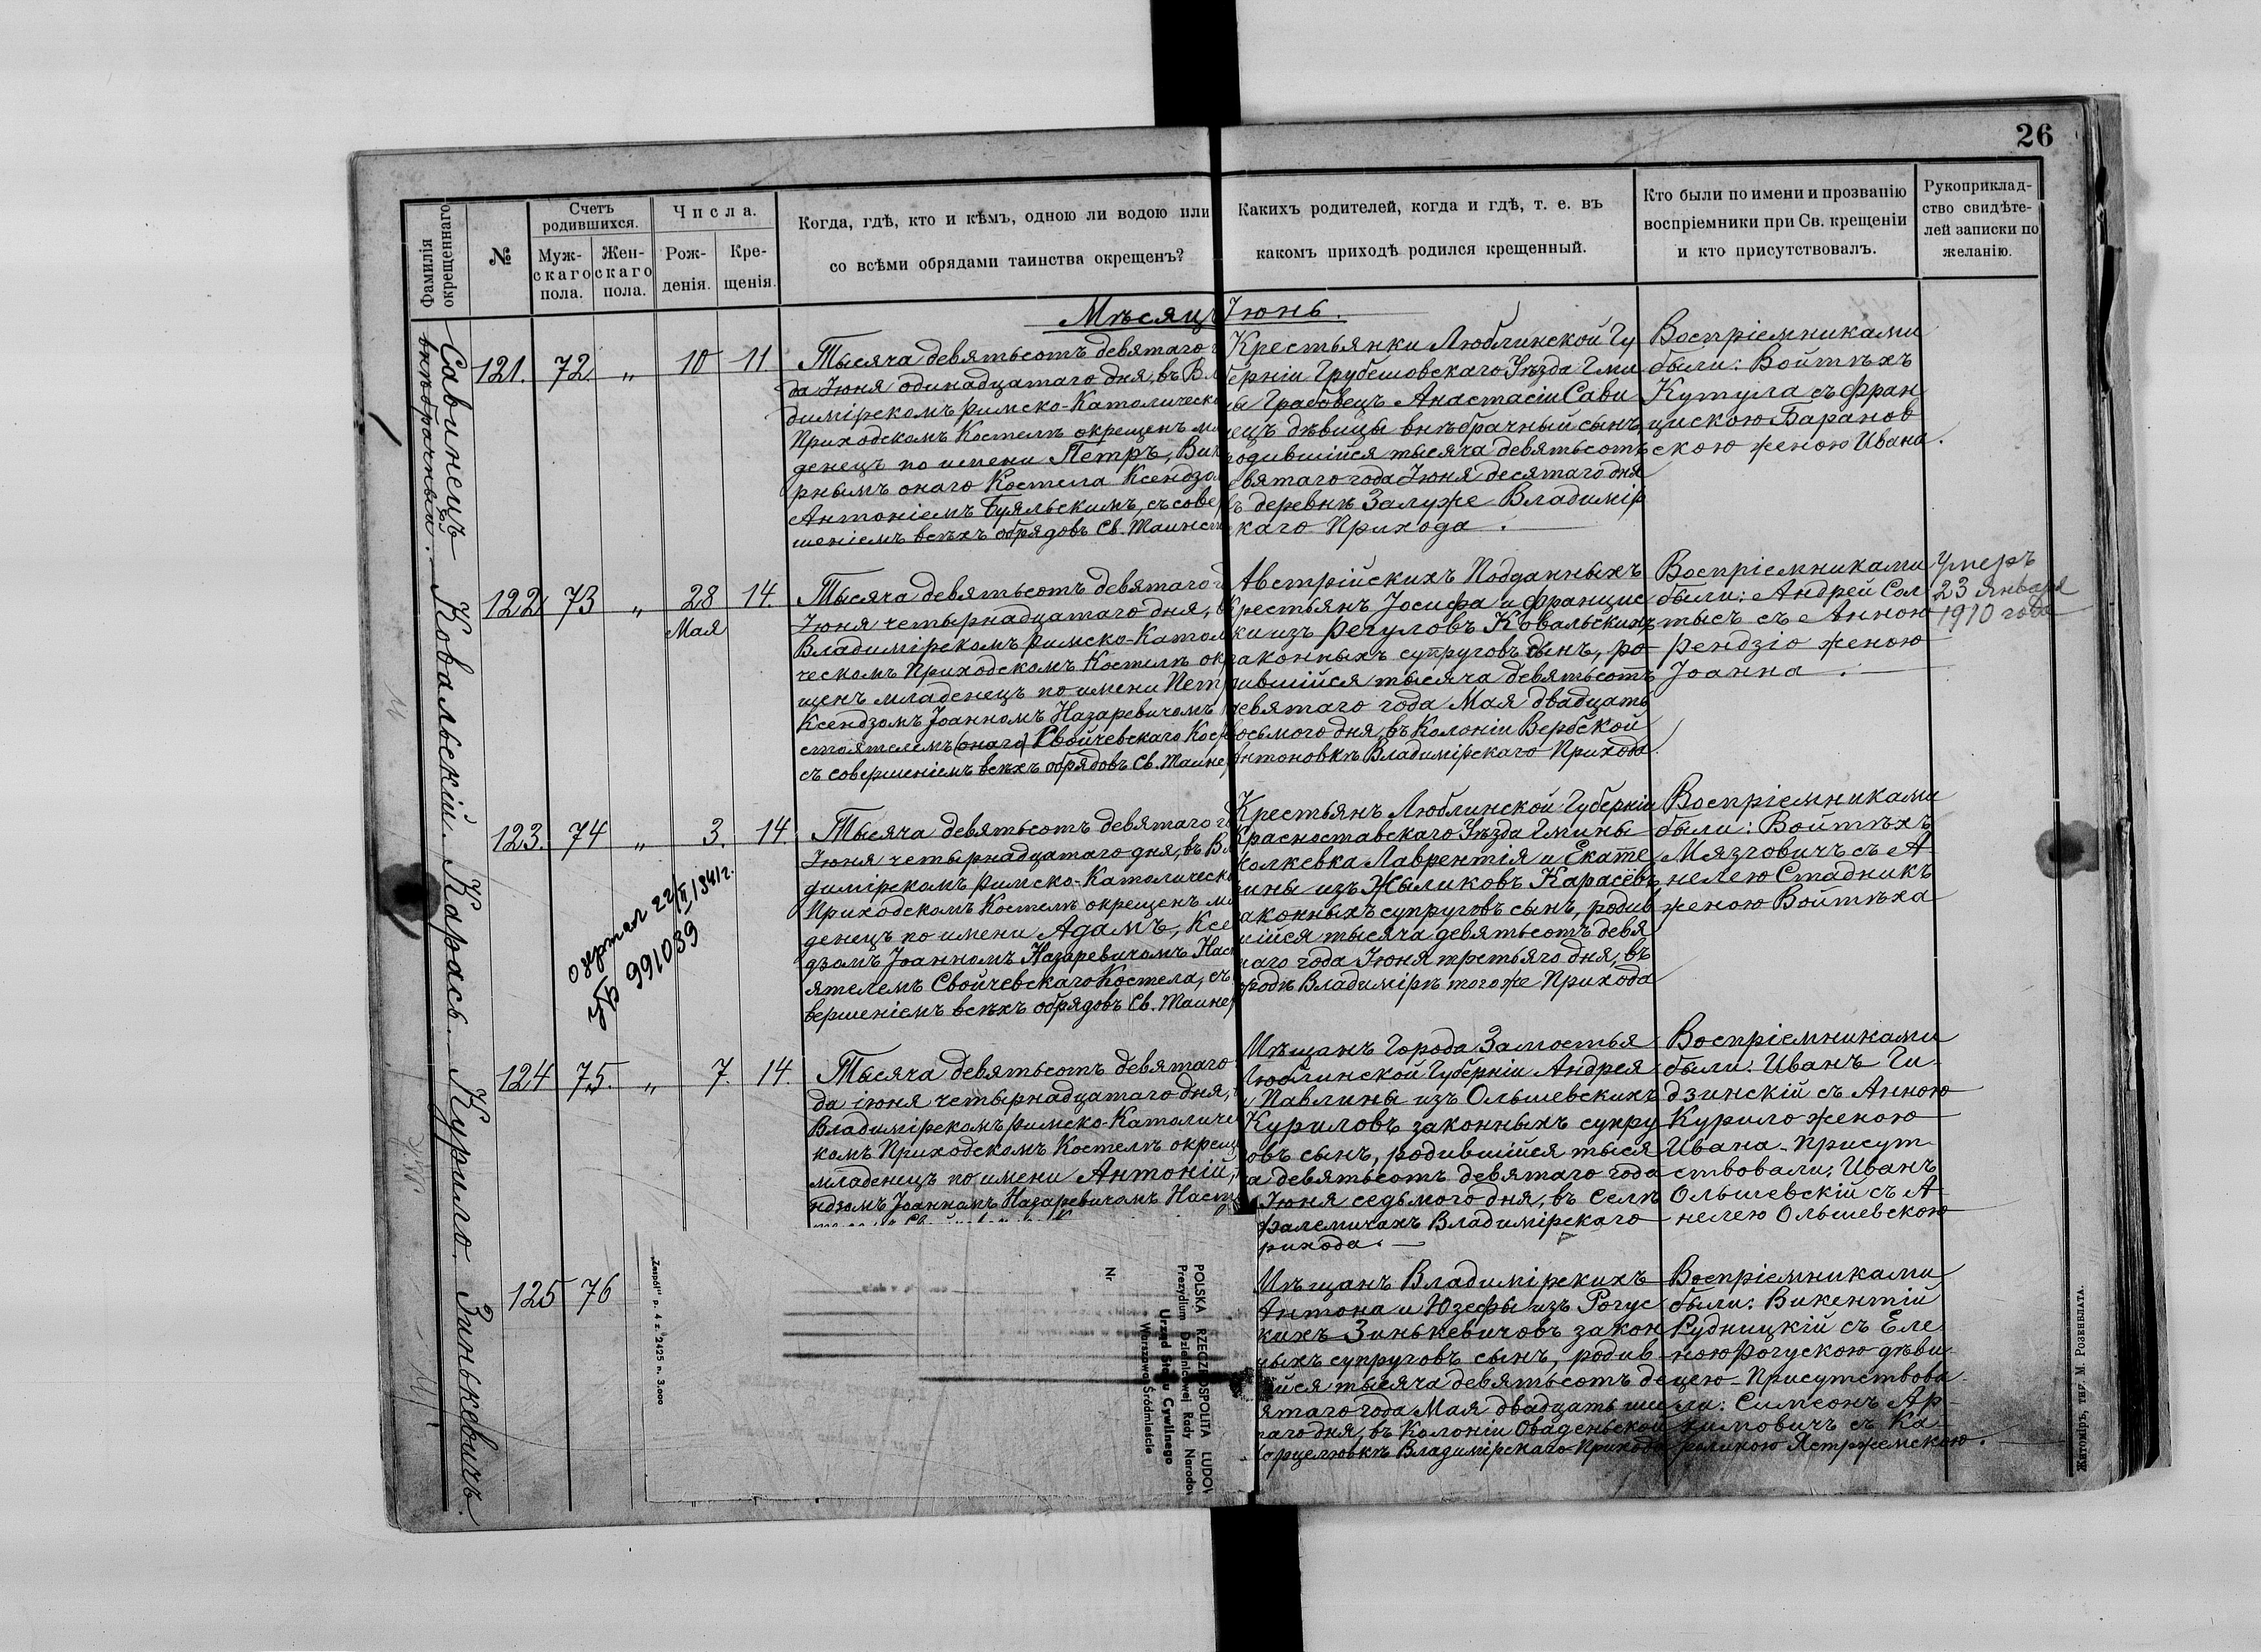 26
Фамилія
окрещеннаго
№
Счетъ
родившихся.
Муж-
скаго
пола.
Жен-
скаго
пола.
Числа.
Рож-
денія.
Кре-
щенія.
Когда, гдѣ, кто и кѣмъ, одною ли водою или
со всѣми обрядами таинства окрещенъ?
Какихъ родителей, когда и гдѣ, т. е. въ
какомъ приходѣ родился крещенный.
Кто были по имени и прозванію
воспріемники при Св. крещеніи
и кто присутствовалъ.
Рукоприклад-
ство свидѣте-
лей записки по
желанію.
Мѣсяцъ Іюнь.
Савинецъ
внѣбрачный.
121. 72. „ 10 11
Тысяча девятьсотъ девятаго
да Іюня одинадцатаго дня, въ Вл
димірскомъ Римско-Католическо
Приходскомъ Костелѣ окрещенъ мл
денецъ по имени Петръ, Вика
рнымъ онаго Костела Ксендзом
Антоніемъ Буяльскимъ, съ совер
шеніемъ всѣхъ обрядовъ Св. Таинст
Крестьянки Люблинской Гу
берніи Грубешовскаго Уѣзда Гми
ны Грабовецъ Анастасіи Сави
нецъ дѣвицы внѣбрачный сынъ,
родившійся тысяча девятьсотъ
евятаго года Іюня десятаго дня
въ деревнѣ Залуже Владимір
скаго Прихода.
Воспріемниками
были: Войтѣхъ
Кутула съ Фран
цискою Баранов
скою женою Ивана.
Ковальскій.
122. 73 „ 28 14.
Мая
Тысяча девятьсотъ девятаго г
Іюня четырнадцатаго дня, в
Владимірскомъ Римско-Катол
ческомъ Приходскомъ Костелѣ окр
щенъ младенецъ по имени Петр
Ксендзомъ Іоанномъ Назаревичомъ
стоятелемъ (онаго) Свойчевскаго Кос
съ совершеніемъ всѣхъ обрядовъ Св. Таин
Австрійскихъ Подданныхъ
Крестьянъ Іосифа и Францис
ки изъ Регуловъ Ковальскихъ
законныхъ супруговъ сынъ, ро
дившійся тысяча девятьсотъ
девятаго года Мая двадцать
восьмого дня, въ Колоніи Вербской
Антоновкѣ Владимірскаго Прихода.
Воспріемниками
были: Андрей Сол
тысъ съ Анною
Рендзіо женою
Іоанна.
Умеръ
23 Января
1910 года
Карась.
123. 74 „ 3. 14.
Тысяча девятьсотъ девятаго го
Іюня четырнадцатаго дня, въ Вл
димірскомъ Римско-Католическо
Приходскомъ Костелѣ окрещенъ мл
денецъ по имени Адамъ, Ксе
дзомъ Іоанномъ Назаревичомъ Наст
ятелемъ Свойчевскаго Костела, съ
вершеніемъ всѣхъ обрядовъ Св. Таин
Крестьянъ Люблинской Губерніи
Красноставскаго Уѣзда Гмины
Жолкевка Лаврентія и Екате
рины изъ Жыликовъ Карасёвъ
законныхъ супруговъ сынъ, родив
шійся тысяча девятьсотъ девя
таго года Іюня третьяго дня, въ
городѣ Владимірѣ того же Прихода
Воспріемниками
были: Войтѣхъ
Мязговичъ съ А
нелею Стадникъ
женою Войтѣха
991039
Курило.
124 75. „ 7. 14.
Тысяча девятьсотъ девятаго
да іюня четырнадцатаго дня,
Владимірскомъ Римско-Католиче
комъ Приходскомъ Костелѣ окрещ
младенецъ по имени Антоній,
ндзомъ Іоанномъ Назаревичомъ Наст
Мѣщанъ Города Замостья
Люблинской Губерніи Андрея
и Павлины изъ Ольшевскихъ
Куриловъ законныхъ супру
говъ сынъ, родившійся тыся
ча девятьсотъ девятаго года
Іюня седьмого дня, въ Селѣ
Фалемичахъ Владимірскаго
рихода.
Воспріемниками
были: Иванъ Ги-
дзинскій съ Анною
Курило женою
Ивана. Присут
ствовали: Иванъ
Ольшевскій съ А
нелею Ольшевскою
Зинькевичъ.
125 76
Мѣщанъ Владимірскихъ
Антона и Юзефы изъ Рогус
кихъ Зинькевичовъ закон
ныхъ супруговъ сынъ, родив
ійся тысяча девятьсотъ де
ятаго года Мая двадцать ше
таго дня, въ Колоніи Оваденьской
Марцелювкѣ Владимірскаго Прихода
Воспріемниками
были: Викентій
Рудницкій съ Еле
ною Рогускою дѣви
цею. Присутствова
ли: Симеонъ Ар-
химовичъ съ Ка-
ролиною Ястржемскою.
„Zespół" p. 4 z. 2425 n. 3.000
Nr
POLSKA RZECZPOSPOLITA LUDOW
Prezydium Dzielnicowej Rady Narodow
Urząd Stanu Cywilnego
Warszawa Śródmieście
Житоміръ, тип. М. Розенблата.